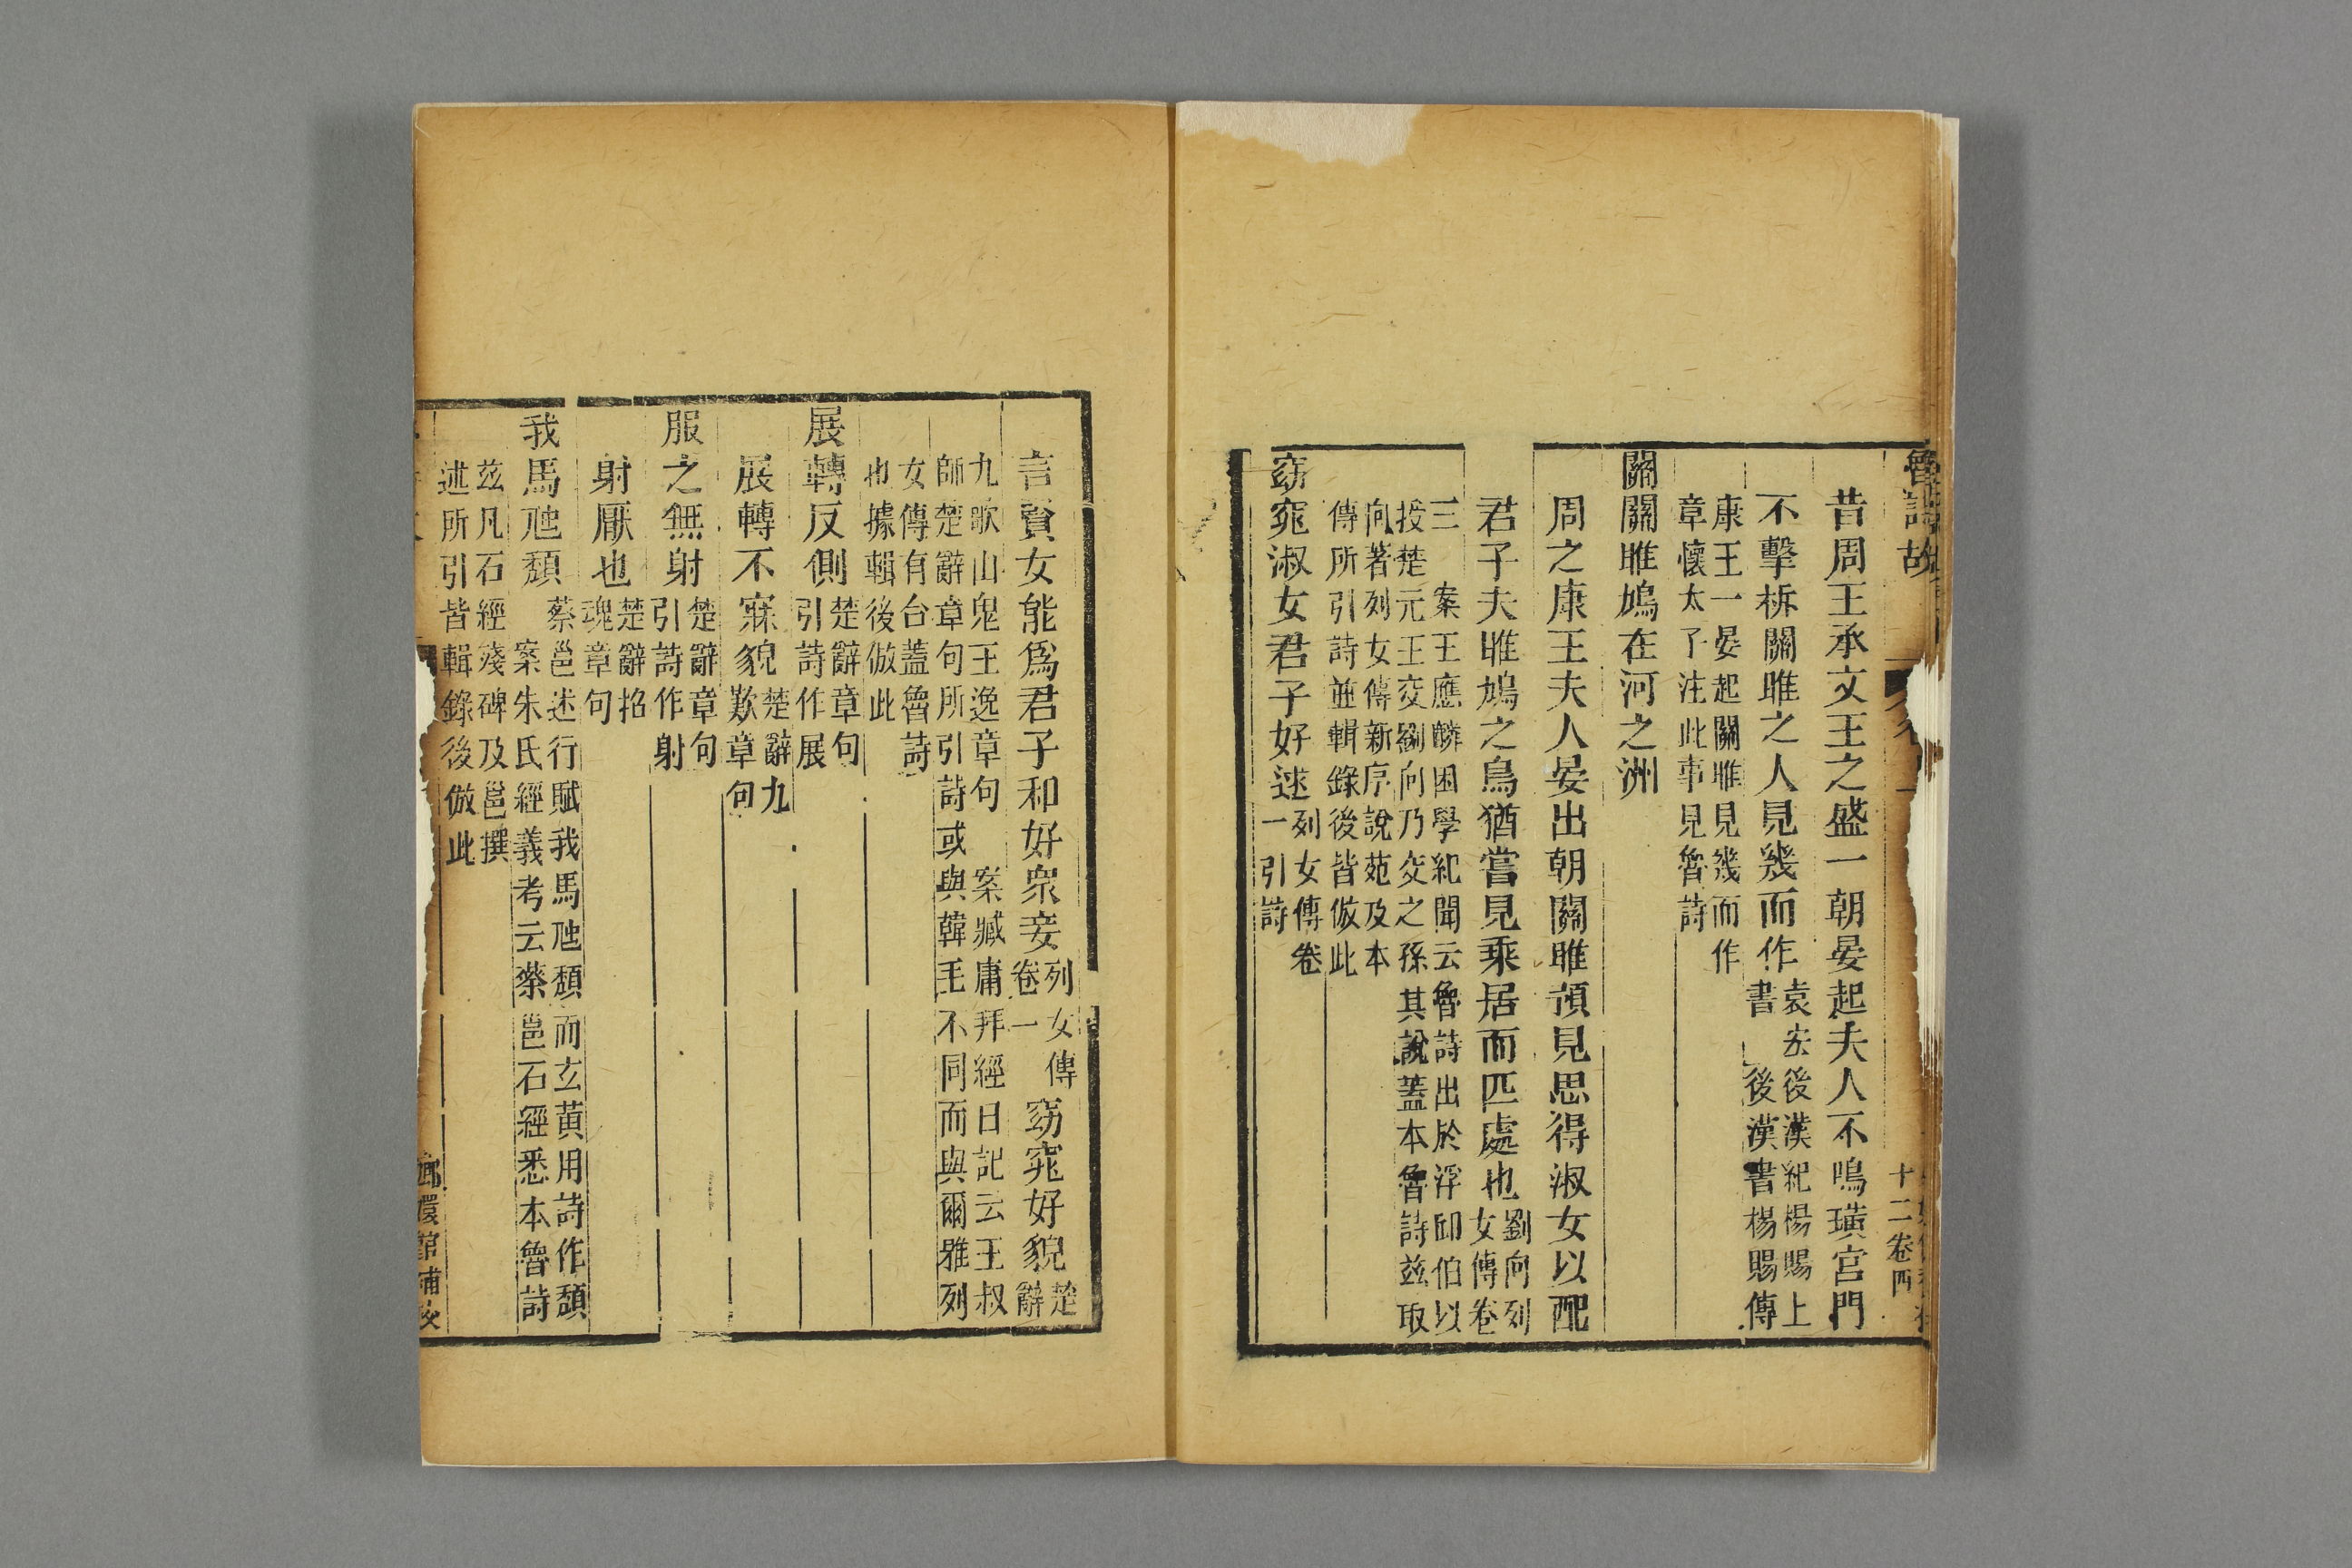 魯詩故
十二卷四
昔周王承文王之盛一朝晏起夫人不鳴璜宮門
不擊柝關雎之人見幾而作
袁宏後漢紀楊賜上
書 後漢書楊賜傳
康王一晏起關雎見幾而作
章懷太子注此事見魯詩
關關雎鳩在河之洲
周之康王夫人晏出朝關雎預見思得淑女以配
君子夫雎鳩之鳥猶嘗見乘居而匹處也
劉向列
女傳卷
三 案王應麟困學紀聞云魯詩出於浮邱伯以
授楚元王交劉向乃交之孫其說蓋本魯詩茲取
向著列女傳新序說苑及本
傳所引詩並輯錄後皆倣此
窈窕淑女君子好逑
列女傳卷
一引詩
言賢女能爲君子和好衆妾
列女傳
卷一
窈窕好貌
楚
辭
九歌山鬼王逸章句 案臧庸拜經日記云王叔
師楚辭章句所引詩或與韓毛不同而與爾雅列
女傳有合蓋魯詩
也據輯後倣此
展轉反側
楚辭章句
引詩作展
展轉不寐貌
楚辭九
歎章句
服之無射
楚辭章句
引詩作射
射厭也
楚辭招
魂章句
我馬虺頹
蔡邕述行賦我馬虺頹而玄黄用詩作頹
案朱氏經義考云蔡邕石經悉本魯詩
茲凡石經殘碑及邕撰
述所引皆輯錄後倣此
嬛館補校